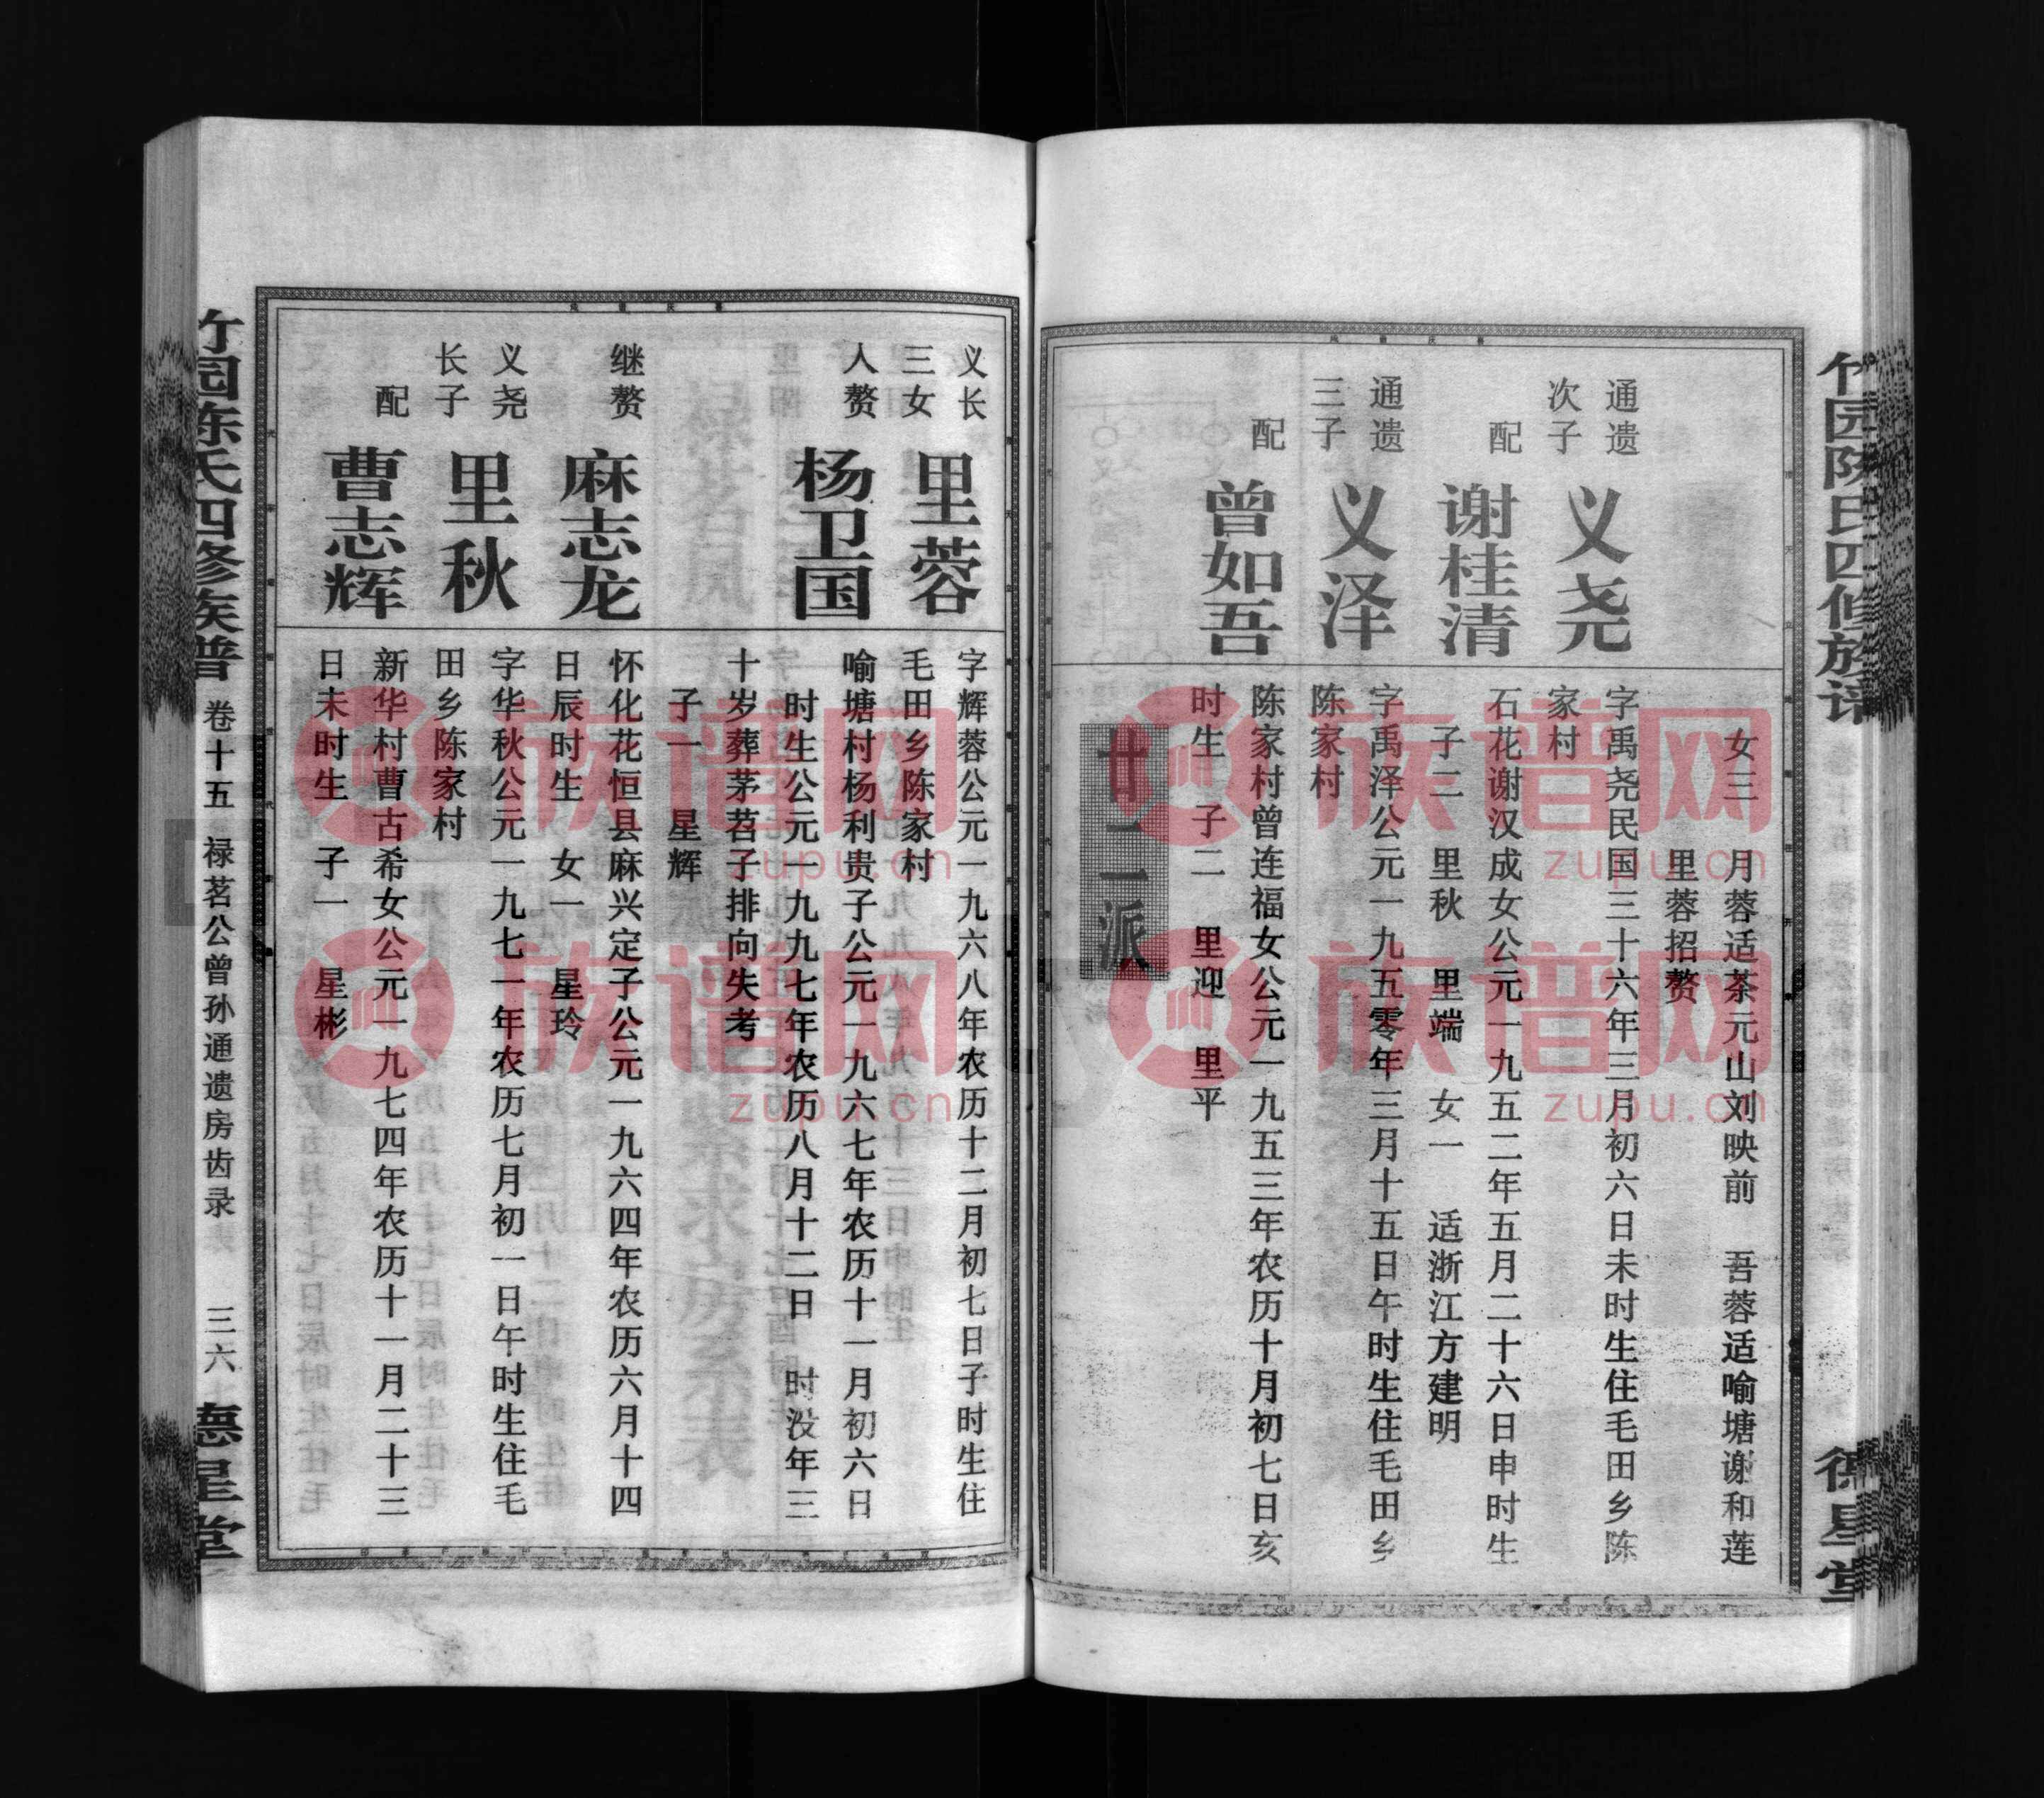 竹园陈氏四修族谱
德星堂
女三　月蓉适茶元山刘映前　吾蓉适喻塘谢和莲
里蓉招赘
通遗
次子
义尧
字禹尧民国三十六年三月初六日未时生住毛田乡陈
家村
配
谢桂清
石花谢汉成女公元一九五二年五月二十六日申时生
子二　里秋　里端　女一　适浙江方建明
通遗
三子
义泽
字禹泽公元一九五零年三月十五日午时生住毛田乡
陈家村
配
曾如吾
陈家村曾连福女公元一九五三年农历十月初七日亥
时生　子二　里迎　里平
廿二派
义长
三女
里蓉
字辉蓉公元一九六八年农历十二月初七日子时生住
毛田乡陈家村
人赘
杨卫国
喻塘村杨利贵子公元一九六七年农历十一月初六日
时生公元一九九七年农历八月十二日　时没年三
十岁葬茅苕子排向失考
子一　星辉
继赘
麻志龙
怀化花恒县麻兴定子公元一九六四年农历六月十四
日辰时生　女一　星玲
义尧
长子
里秋
字华秋公元一九七一年农历七月初一日午时生住毛
田乡陈家村
配
曹志辉
新华村曹古希女公元一九七四年农历十一月二十三
日未时生　子一　星彬
竹园陈氏四修族谱
卷十五
禄茗公曾孙通遗房齿录
三六
德星堂
族谱网
zupu.cn
族谱网
zupu.cn
族谱网
zupu.cn
族谱网
zupu.cn